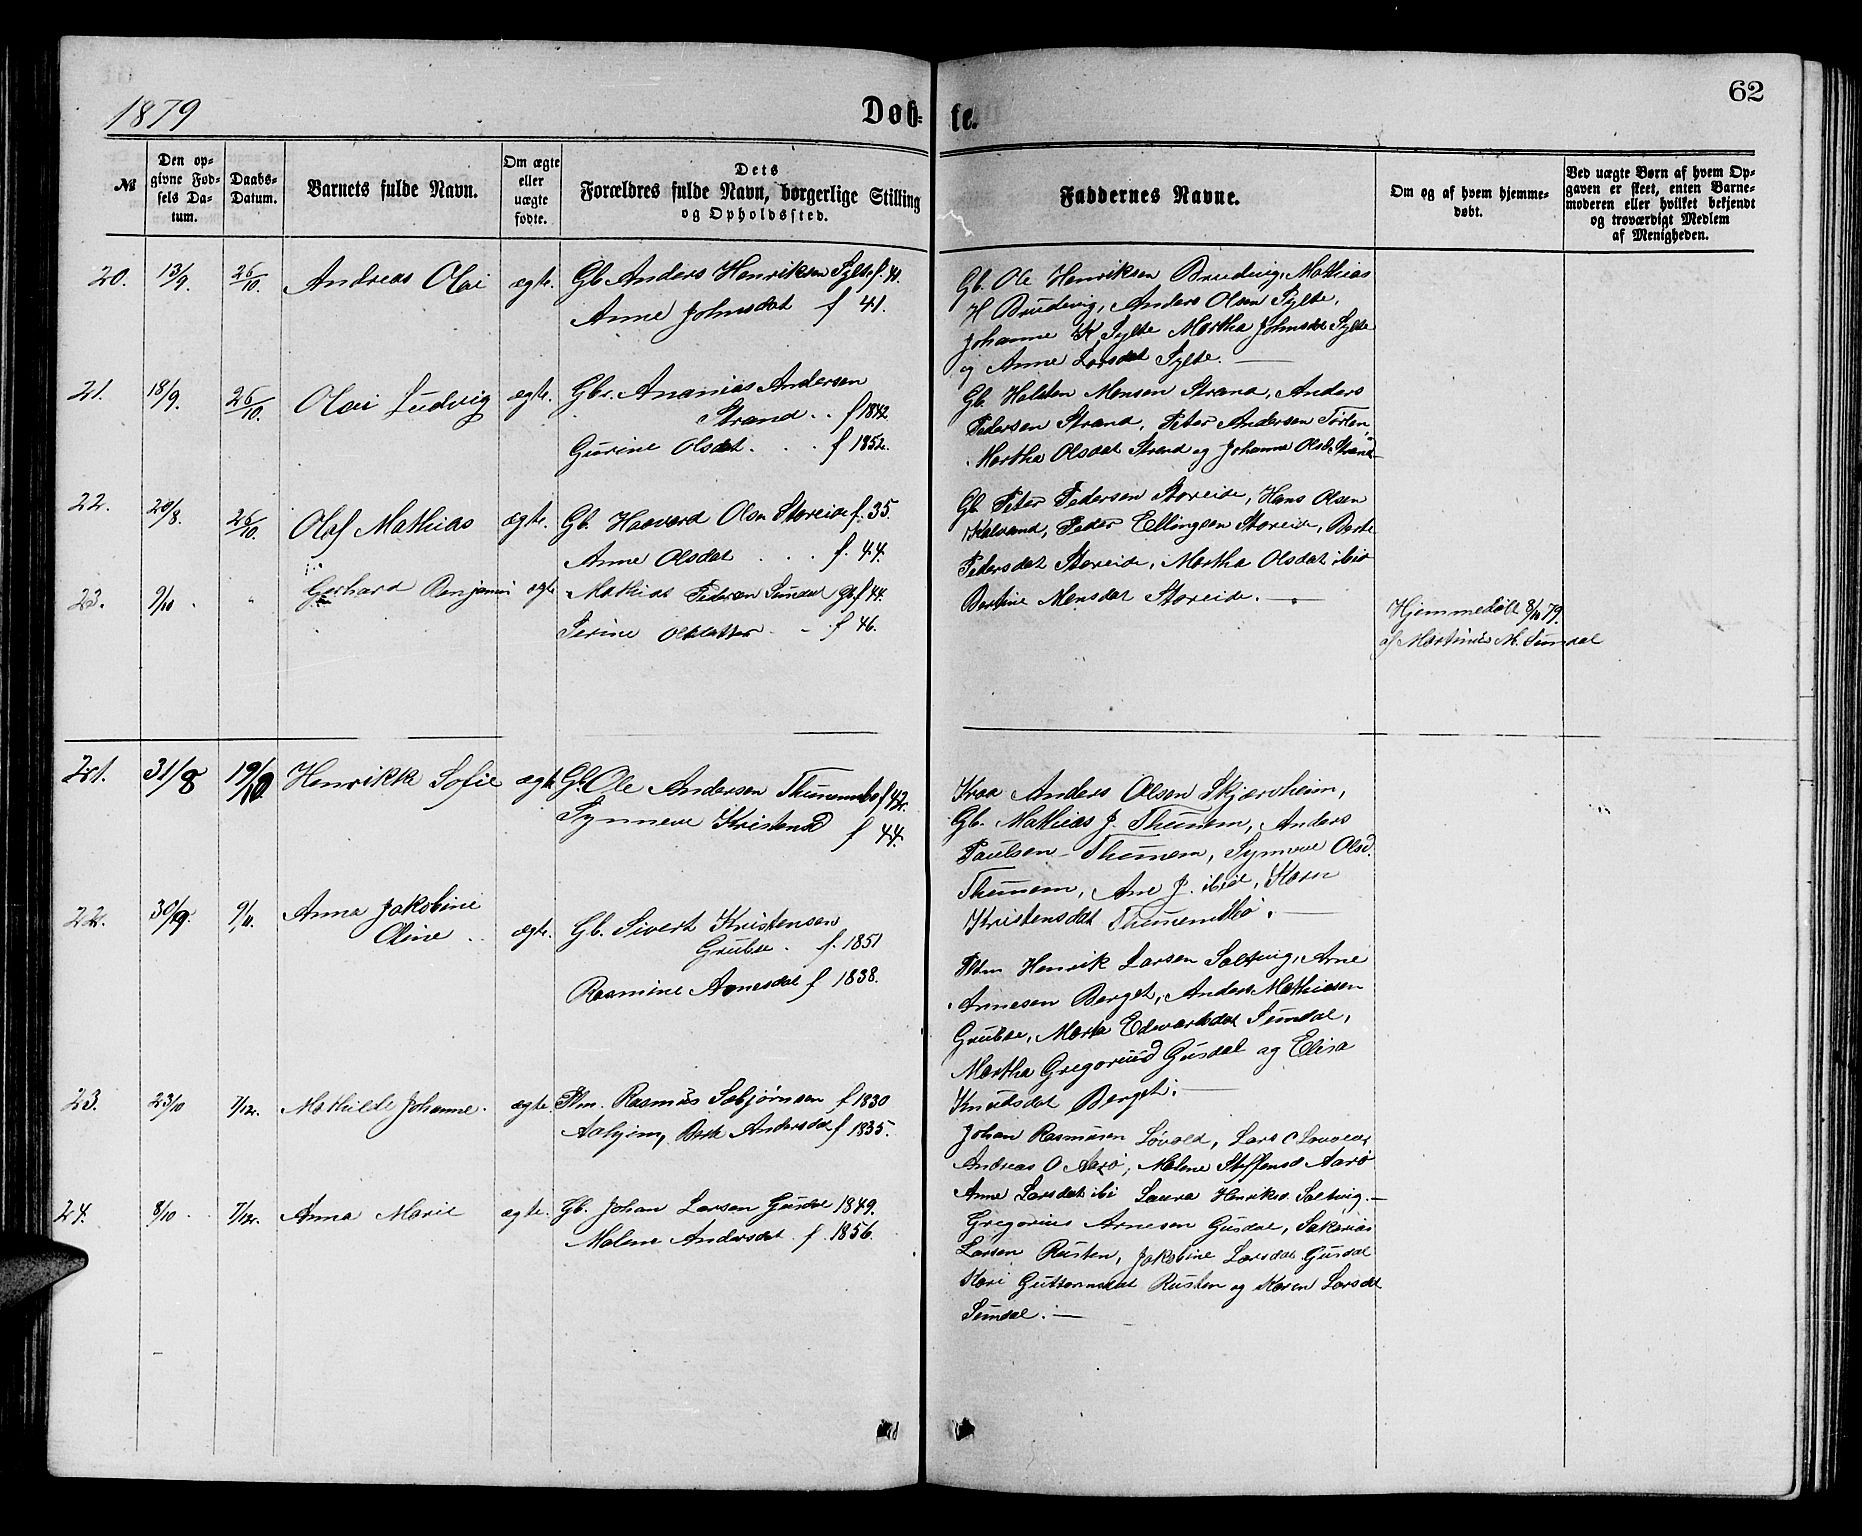 1879
Døb-
te.
62
№
Den op-
givne Fød-
sels Da-
tum.
Daabs-
Datum.
Barnets fulde Navn.
Om ægte
eller
uægte
fødte.
Dets
Forældres fulde Navn, borgerlige Stilling
og Opholdssted.
Faddernes Navne.
Om og af hvem hjemme-
døbt.
Ved uægte Børn af hvem Op-
gaven er skeet, enten Barne-
moderen eller hvilket bekjendt
og troværdigt Medlem
af Menigheden.
20. 13/9. 26/10. Andreas Olai ægte. Gb Anders Henriksen Sylte f. 41.
Anne Johnsdat f 41.
Gb. Ole Henriksen Brudvig, Mathias
H Brudvig, Anders Olsen Sylte,
Johanne K Sylte Martha Johnsdat Sylte
og Anne Larsdat Sylte. —
21. 18/9. 26/10. Olai Ludvig ægte. Gbr. Ananias Andersen
Strand . . f 1842.
Gurine Olsdat. . . f 1852.
Gb. Halsten Monsen Strand, Anders
Pedersen Strand, Peter Andersen
Martha Olsdat Strand og Johanna Olsd. Strand
22. 20/8. 26/10. Olaf Mathias ægte. Gb. Haavard Olsn Storeide f. 35.
Anne Olsdat . . . f. 44.
Gb Peter Pedersen Storeide, Hans Olsen
Kalvand, Peder Ellingsen Storeide, Berte
Pedersdat Storeide, Martha Olsdat ibid
Bertine Monsdat Storeide. —
23. 9/10 . " Gerhard Benjamin ægte Mathias Pedersen Sundal Gb f 44.
Serine Olsdatter . - f 46.
Hjemmedøbt 8/11 79.
af Martinus M. Sundal
21. 31/8 19/10 Henrikke Sofie ægte Gb. Ole Andersen f 42.
Synneve Kristensd f 44.
Anders Olsen Skjærvheim,
Gb. Mathias J. Thunem, Anders
Paulsen Thunem, Synneve Olsd.
Thunem, Ane J. ibid, Karen
Kristensdat Thunemsbø. —
22. 30/9. 9/11. Anna Jakobine
Oline . . ægte. Gb. Sivert Kristensen
Grubse . f. 1851
Rasmine Arnesdat f 1838.
Pldm Henrik Larsen Saltvig, Arne
Arnesen Berget, Anders Mathiesen
Grubse, Marta Edvardsdat Sundal,
Martha Gregoriusd Gusdal og Elisa
Knudsdat Berget. —
23. 23/10 7/12. Mathilde Johanne. ægte. Plm. Rasmus Sæbjørnsen f 1830
Berte Andersdat f 1835.
Johan Rasmusen Løvold, Lars C Løvold,
Andreas O Aarø, Malene Steffensd Aarø
Anne Larsdat ibi Laura Henriksd. Saltvig. —
24. 8/10 . . 7/12. Anna Marie ægte. Gb. Johan Larsen Gusdal 1849.
Malene Andersdat . f. 1856.
Gregorius Arnesen Gusdal, Sakarias
Larsen Rusten, Jakobine Larsdat Gusdal
Kari Guttormsdat Rusten og Karen Larsdat
Sundal. —